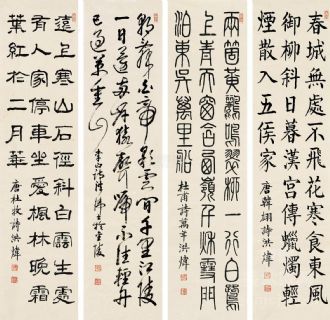 春城無處不飛花寒食東風
御柳斜日暮漢宮傳蠟燭輕
煙散入五侯家
唐韓翃詩洪煒
兩箇黃鸝鳴翠柳一行白鷺
上青天窗含西嶺千秋雪門
泊東吳萬里船
杜甫詩
洪煒
朝辭白帝彩雲間千里江陵
一日還兩岸猿聲啼不住輕舟
已過萬重山
李白詩洪煒
遠上寒山石徑斜白雲生處
有人家停車坐愛楓林晚霜
葉紅於二月華
唐杜牧詩洪煒